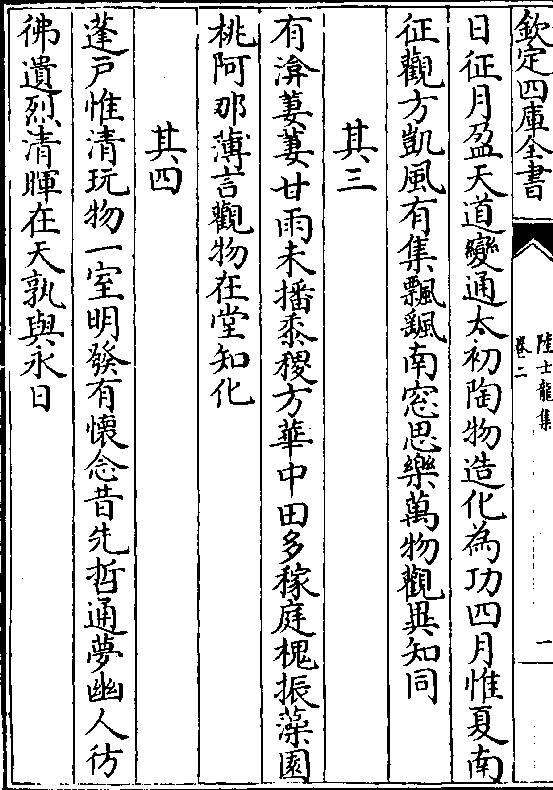 欽定四庫全書
陸士龍集
卷二
二
日征月盈天道變通太初陶物造化為功四月惟夏南
征觀方凱風有集飄颻南窓思樂萬物觀異知同
其三
有渰萋萋甘雨未播黍稷方華中田多稼庭槐振藻園
桃阿那薄言觀物在堂知化
其四
蓬戸惟清玩物一室明發有懷念昔先哲通夢幽人彷
彿遺烈清暉在天孰與永日